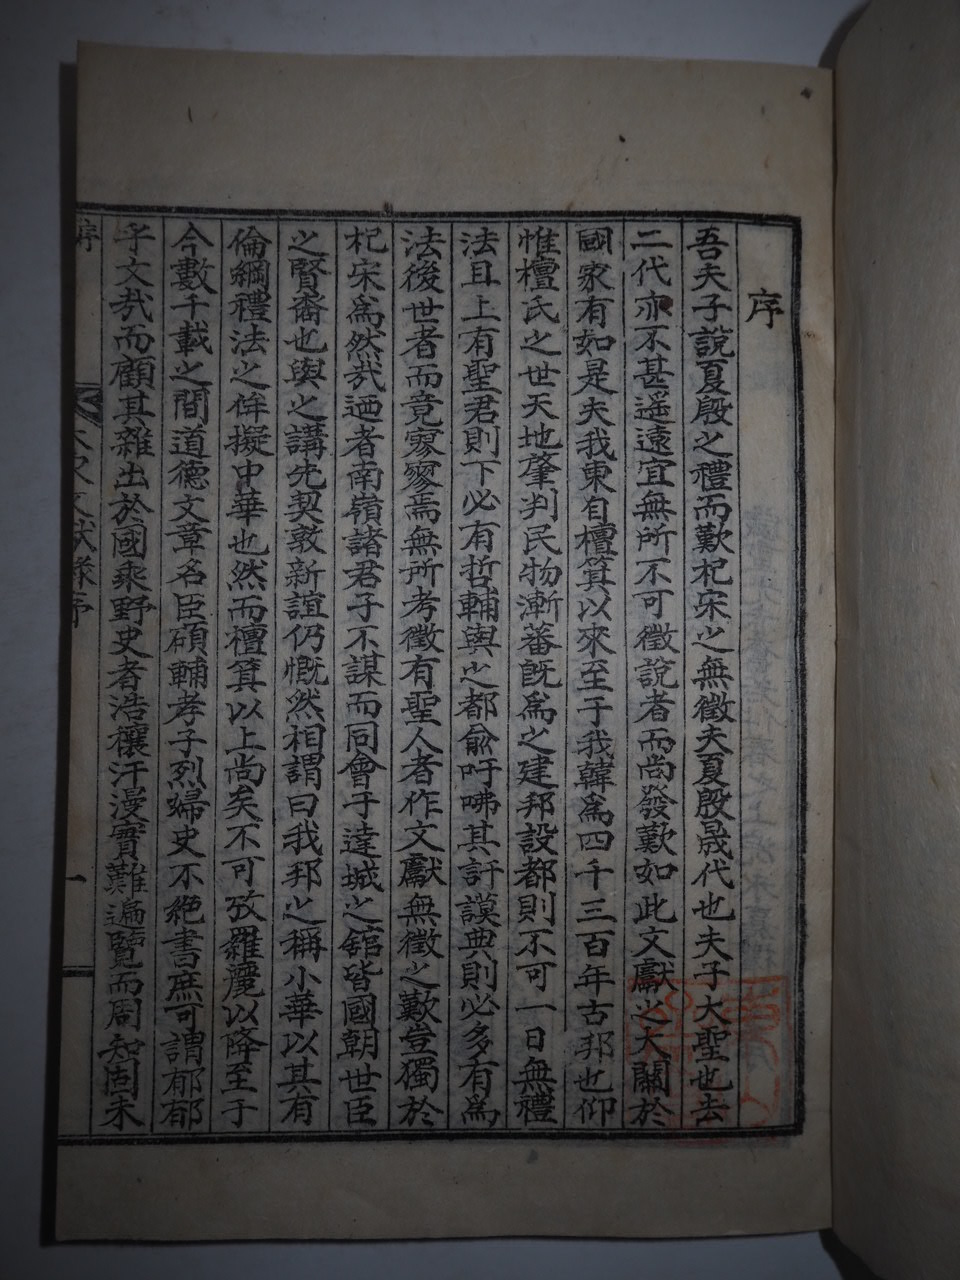 序
吾夫子說夏殷之禮而歎杞宋之無徵夫夏殷晟代也夫子大聖也去
二代亦不甚遥遠宜無所不可徵說者而尙發歎如此文獻之大關於
國家有如是夫我東自檀箕以來至于我韓爲四千三百年古邦也仰
惟檀氏之世天地肇判民物漸蕃旣爲之建邦設都則不可一日無禮
法且上有聖君則下必有哲輔與之都兪吁咈其訏謨典則必多有爲
法後世者而竟寥寥焉無所考徵有聖人者作文獻無徵之歎豈獨於
杞宋爲然㢤迺者南嶺諸君子不謀而同會于達城之舘皆國朝世臣
之賢裔也與之講先契敦新誼仍慨然相謂曰我邦之稱小華以其有
倫綱禮法之侔擬中華也然而檀箕以上尙矣不可攷羅麗以降至于
今數千載之間道德文章名臣碩輔孝子烈婦史不絶書庶可謂郁郁
乎文㢤而顧其雜出於國乘野史者浩穰汗漫實難遍覽而周知固未